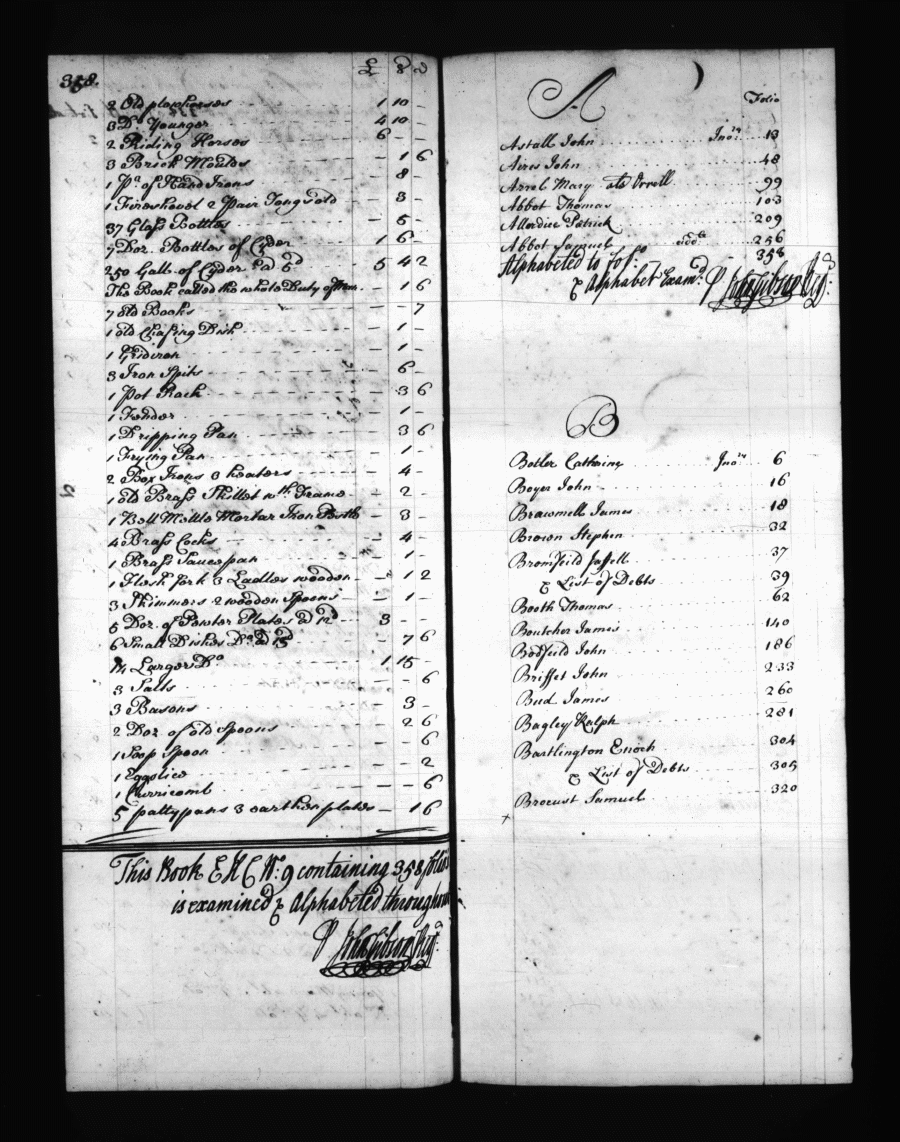 358.
£ s d
2 Old plowhorses 1 10 -
3 Do. Younger 4 10 -
2 Riding Horses 6 - -
3 Brick Moulds - 1 6
1 Pr. of Hand Irons - 8 -
1 Fireshovel 2 Pair Tongs old - 3 -
37 Glass Bottles - 5 -
7 Doz. Bottles of Cyder 1 6 -
250 Galls. of Cyder @ 5d 5 4 2
The Book called the whole Duty of Man - 1 6
7 old Books - - 7
1 old Chafing Dish - 1 -
1 Gridiron - 1 -
3 Iron Spits - 6 -
1 Pot Rack - 3 6
1 Fender - 1 -
1 Dripping Pan - 3 6
1 Frying Pan - 1 -
2 Box Irons 3 heaters - 4 -
1 old Brass Skillet wth. Frame - 2 -
1 Bell Mettle Mortar Iron - 3 -
4 Brass Cocks - 4 -
1 Brass Saucepan - 1 -
1 Flesh fork 3 Ladles wooden - 1 2
3 Skimmers 2 wooden Spoons - 1 -
5 Doz. of Pewter Plates @ 12d 3
6 Small Dishes Do. @ 15d - 7 6
14 Larger Do 1 15 -
3 Salts - - 6
3 Basons - 3 -
2 Doz. of old Spoons - 2 6
1 Soop Spoon - - 6
1 Eggslice - - 2
1 Curricomb - - 6
5 pattypans 3 earthen plates - 1 6
This Book E H C No: 9 containing 358 folios
is examined & Alphabeted throughout
P John Gibson Regr.
A
Folio
Astall John Inory. 13
Aires John 48
Arrel Mary als Orrell 99
Abbot Thomas 103
Allerdice Patrick 209
Abbot Samuel addl. 256
Alphabeted to fo: 358
& Alphabet Examd. P John Gibson Regr:
B
Botler Catherine Inory. 6
Boyer John 16
Brawmell James 18
Brown Stephen 32
Bromfeild Jaffell 37
& List of Debts 39
Booth Thomas 62
Boutcher James 140
Bedfeild John 186
Brisset John 233
Bud James 260
Bagley Ralph 281
Bartlington Enoch 304
& List of Debts 305
Brocust Samuel 320
+